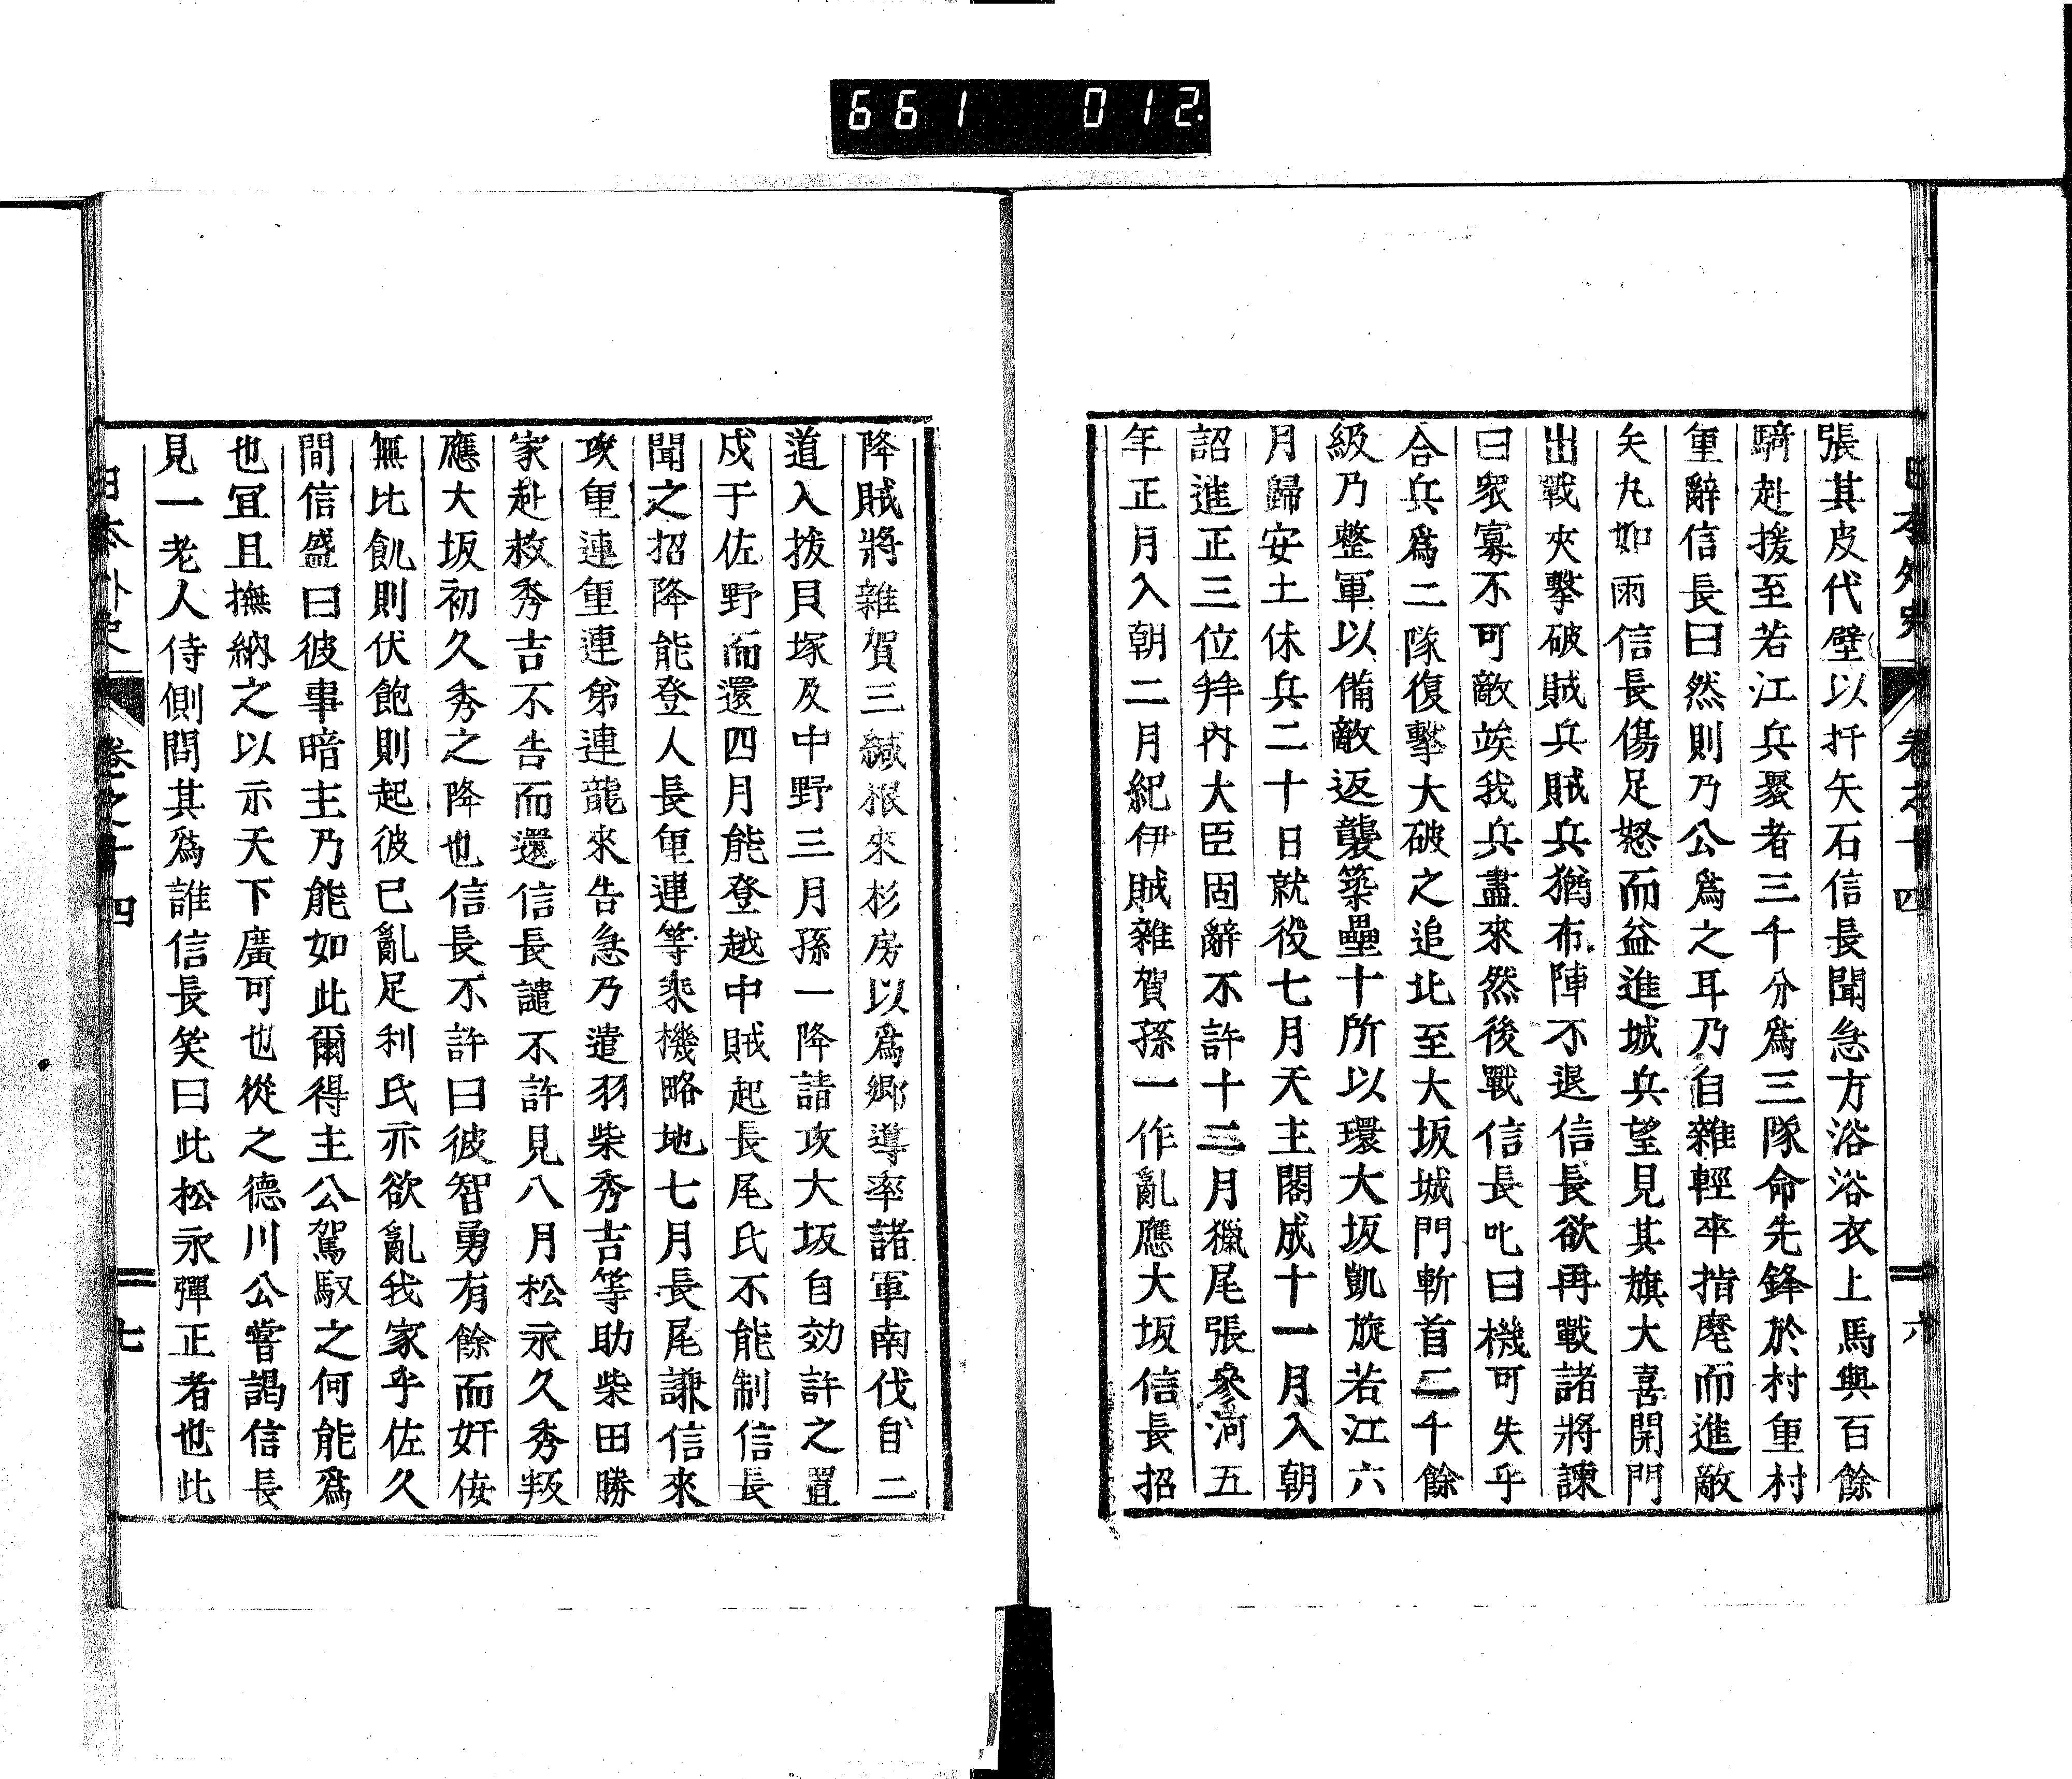 661 012.
日本外史 卷之十四 六
張其皮代壁以扞矢石信長聞急方浴浴衣上馬與百餘
騎赴援至若江兵聚者三千分爲三隊命先鋒於村重村
重辭信長曰然則乃公爲之耳乃自雜輕卒指麾而進敵
矢丸如雨信長傷足怒而益進城兵望見其旗大喜開門
出戰夾擊破賊兵賊兵猶布陣不退信長欲再戰諸將諫
曰衆寡不可敵竢我兵盡來然後戰信長叱曰機可失乎
合兵爲二隊復擊大破之追北至大坂城門斬首二千餘
級乃整軍以備敵返襲築壘十所以環大坂凱旋若江六
月歸安土休兵二十日就役七月天主閣成十一月入朝
詔進正三位拜內大臣固辭不許十二月獵尾張參河五
年正月入朝二月紀伊賊雜賀孫一作亂應大坂信長招
降賊將雜賀三緘根來杉房以爲鄉導率諸軍南伐自二
道入拔貝塚及中野三月孫一降請攻大坂自効許之置
戍于佐野而還四月能登越中賊起長尾氏不能制信長
聞之招降能登人長重連等乘機略地七月長尾謙信來
攻重連重連弟連龍來告急乃遣羽柴秀吉等助柴田勝
家赴救秀吉不告而還信長譴不許見八月松永久秀叛
應大坂初久秀之降也信長不許曰彼智勇有餘而奸侫
無比飢則伏飽則起彼已亂足利氏亦欲亂我家乎佐久
間信盛曰彼事暗主乃能如此爾得主公駕馭之何能爲
也宜且撫納之以示天下廣可也從之德川公嘗謁信長
見一老人侍側問其爲誰信長笑曰此松永彈正者也此
日本外史 卷之十四 七